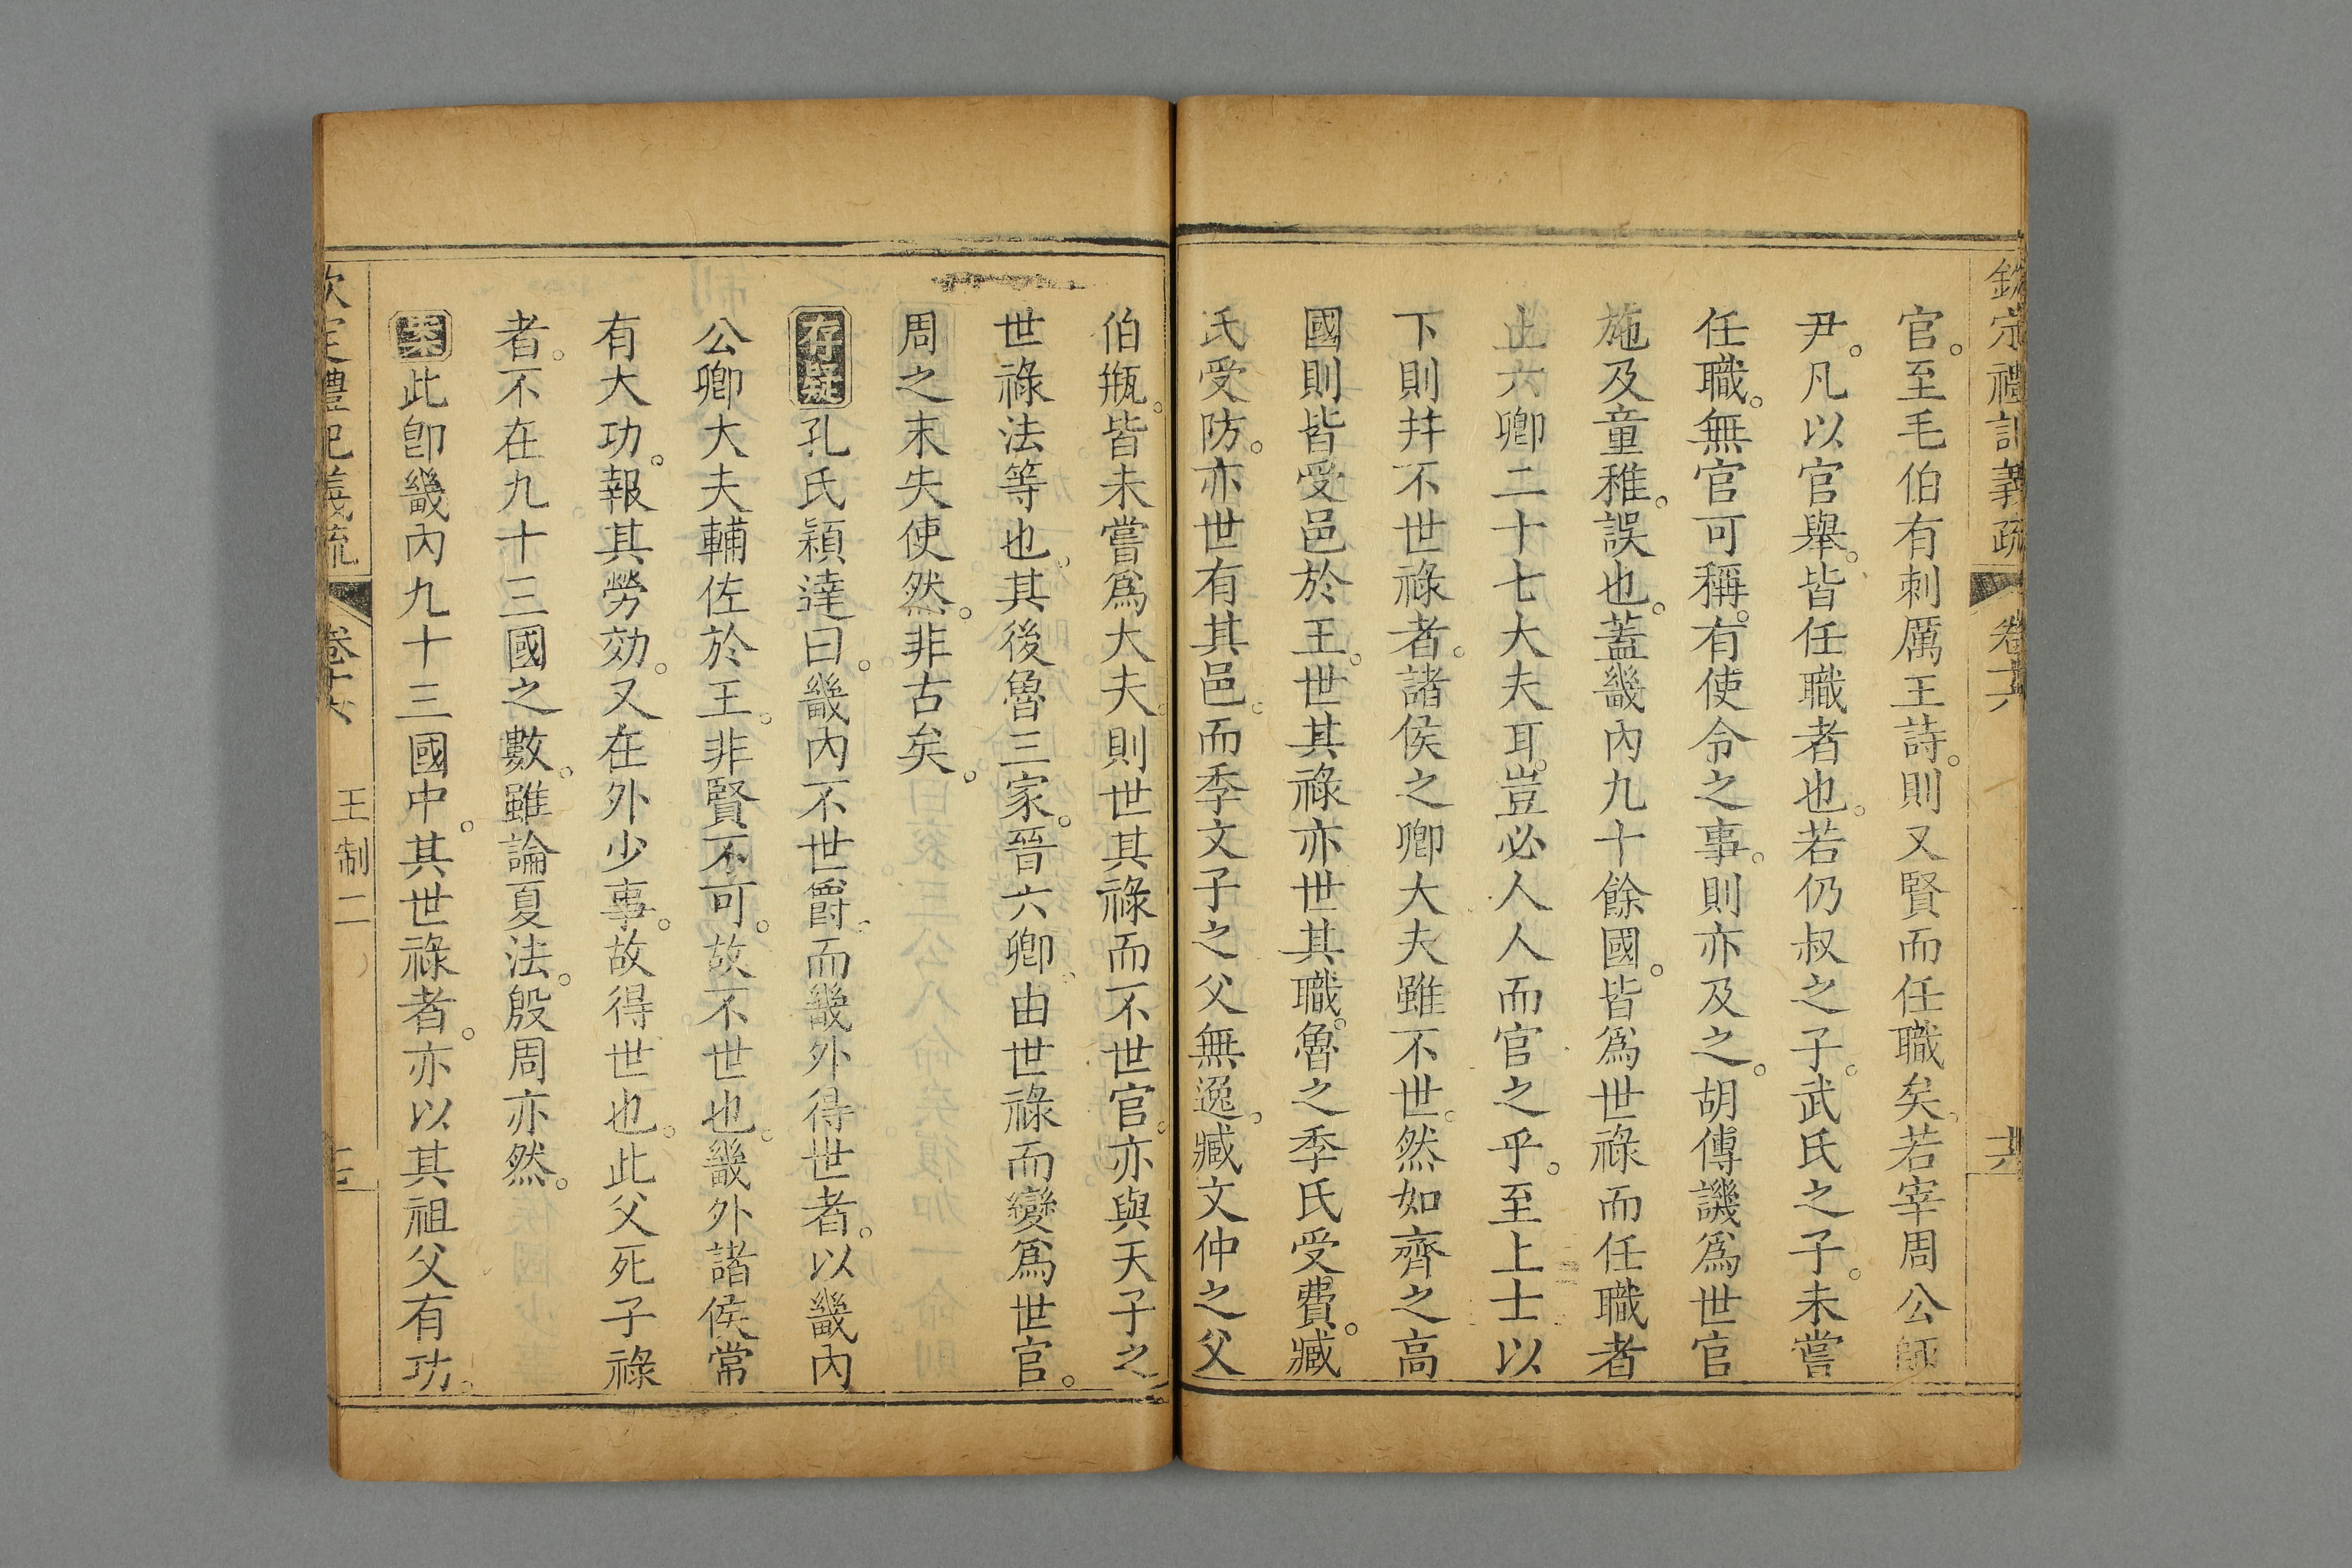 欽定禮記義疏 卷十六
官。至毛伯有刺厲王詩。則又賢而任職矣。若宰周公師
尹。凡以官舉。皆任職者也。若仍叔之子。武氏之子。未嘗
任職。無官可稱。有使令之事。則亦及之。胡傳譏爲世官
施及童稚。誤也。蓋畿內九十餘國。皆爲世祿而任職者
止六卿二十七大夫耳。豈必人人而官之乎。至上士以
下則幷不世祿者。諸侯之卿大夫雖不世。然如齊之高
國則皆受邑於王。世其祿亦世其職。魯之季氏受費。臧
氏受防。亦世有其邑。而季文子之父無逸。臧文仲之父
伯瓶。皆未嘗爲大夫。則世其祿而不世官。亦與天子之
世祿法等也。其後魯三家。晉六卿。由世祿而變爲世官。
周之末失使然。非古矣。
存疑孔氏穎達曰。畿內不世爵。而畿外得世者。以畿內
公卿大夫輔佐於王。非賢不可。故不世也。畿外諸侯常
有大功。報其勞効。又在外少事。故得世也。此父死子祿
者。不在九十三國之數。雖論夏法。殷周亦然。
案此卽畿內九十三國中。其世祿者。亦以其祖父有功。
欽定禮記義疏 卷十六 王制二